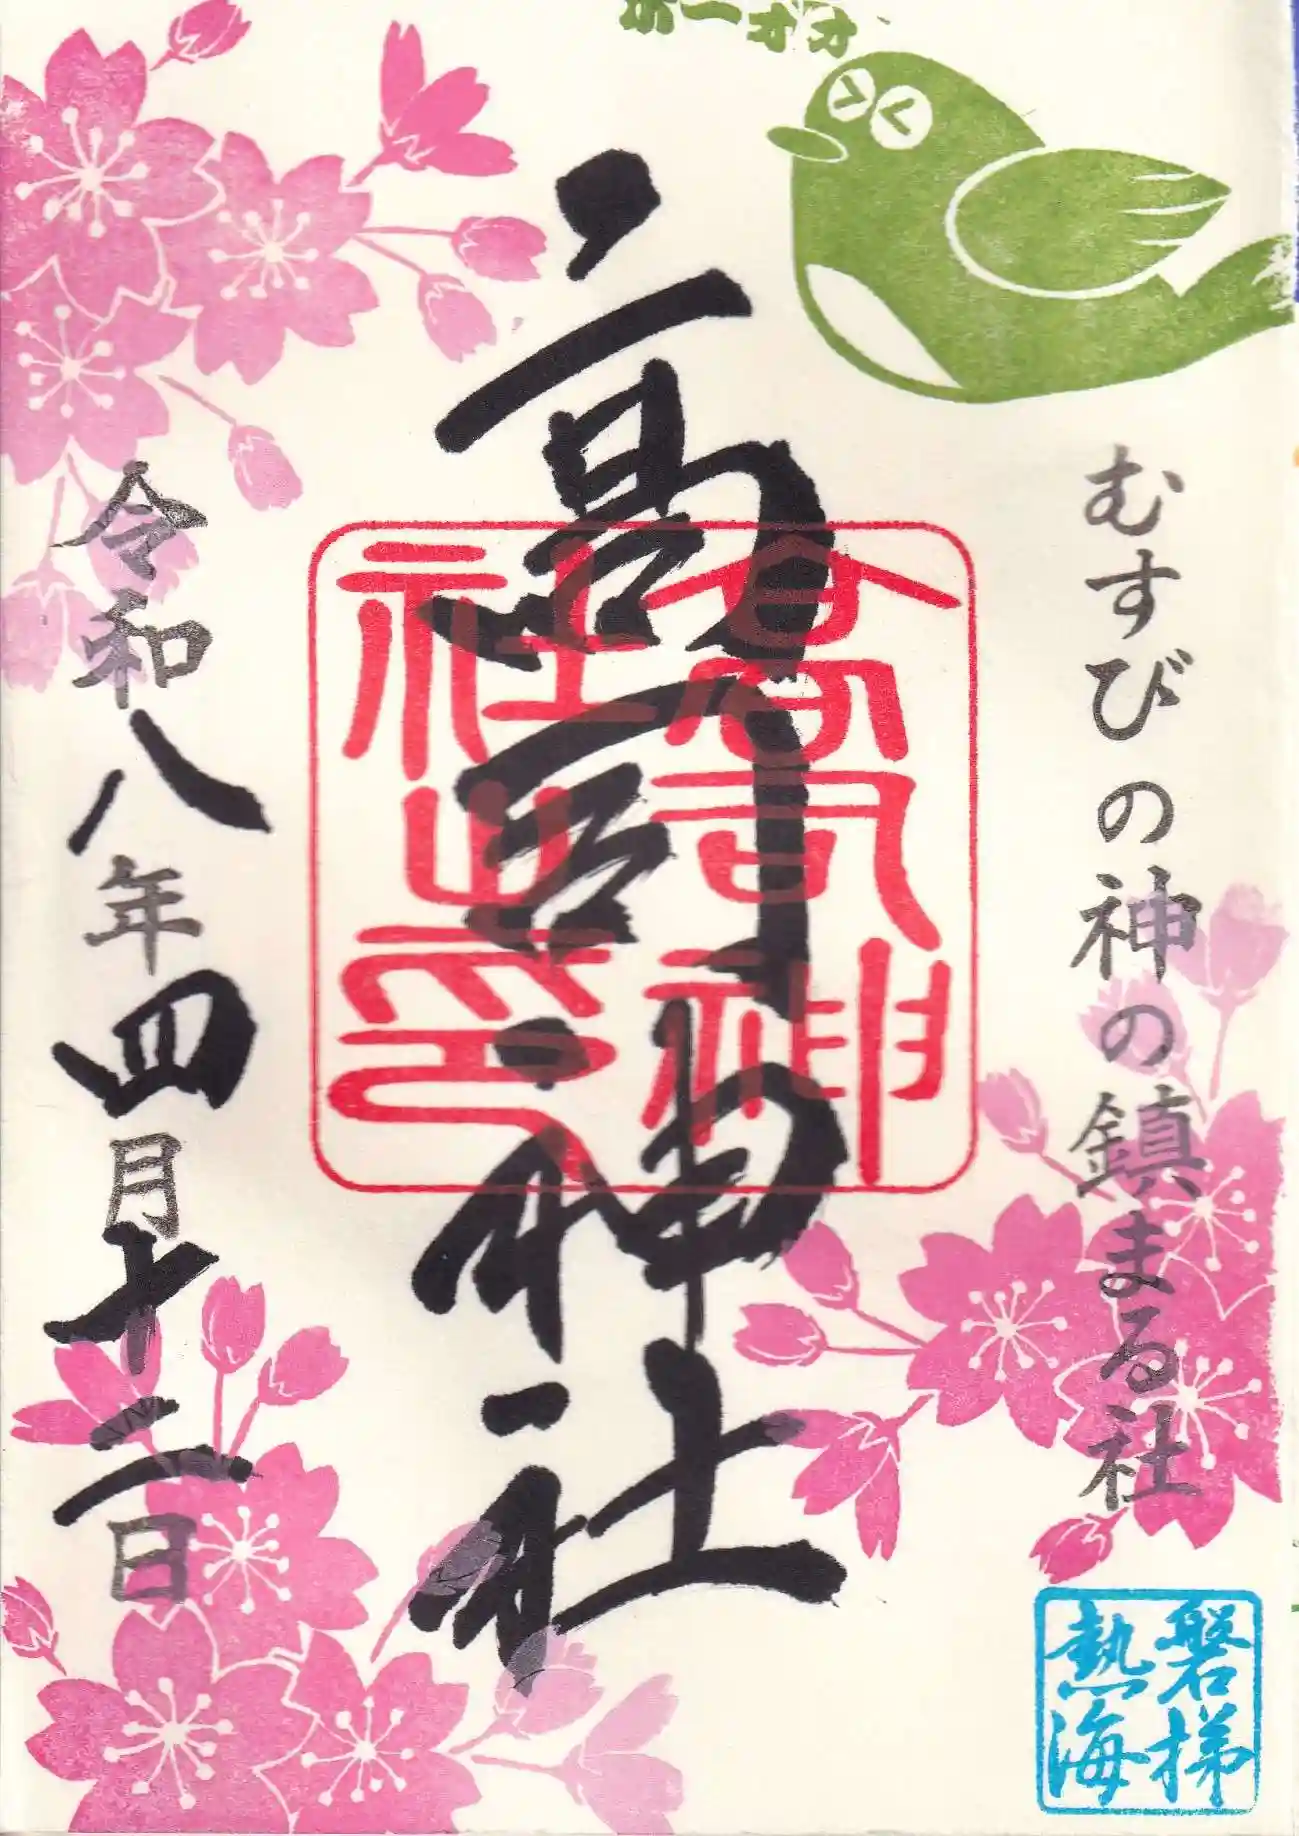 ホーオオ
むすびの神の鎮まる社
高司神社
高司神社之印
令和八年四月十二日
磐梯熱海